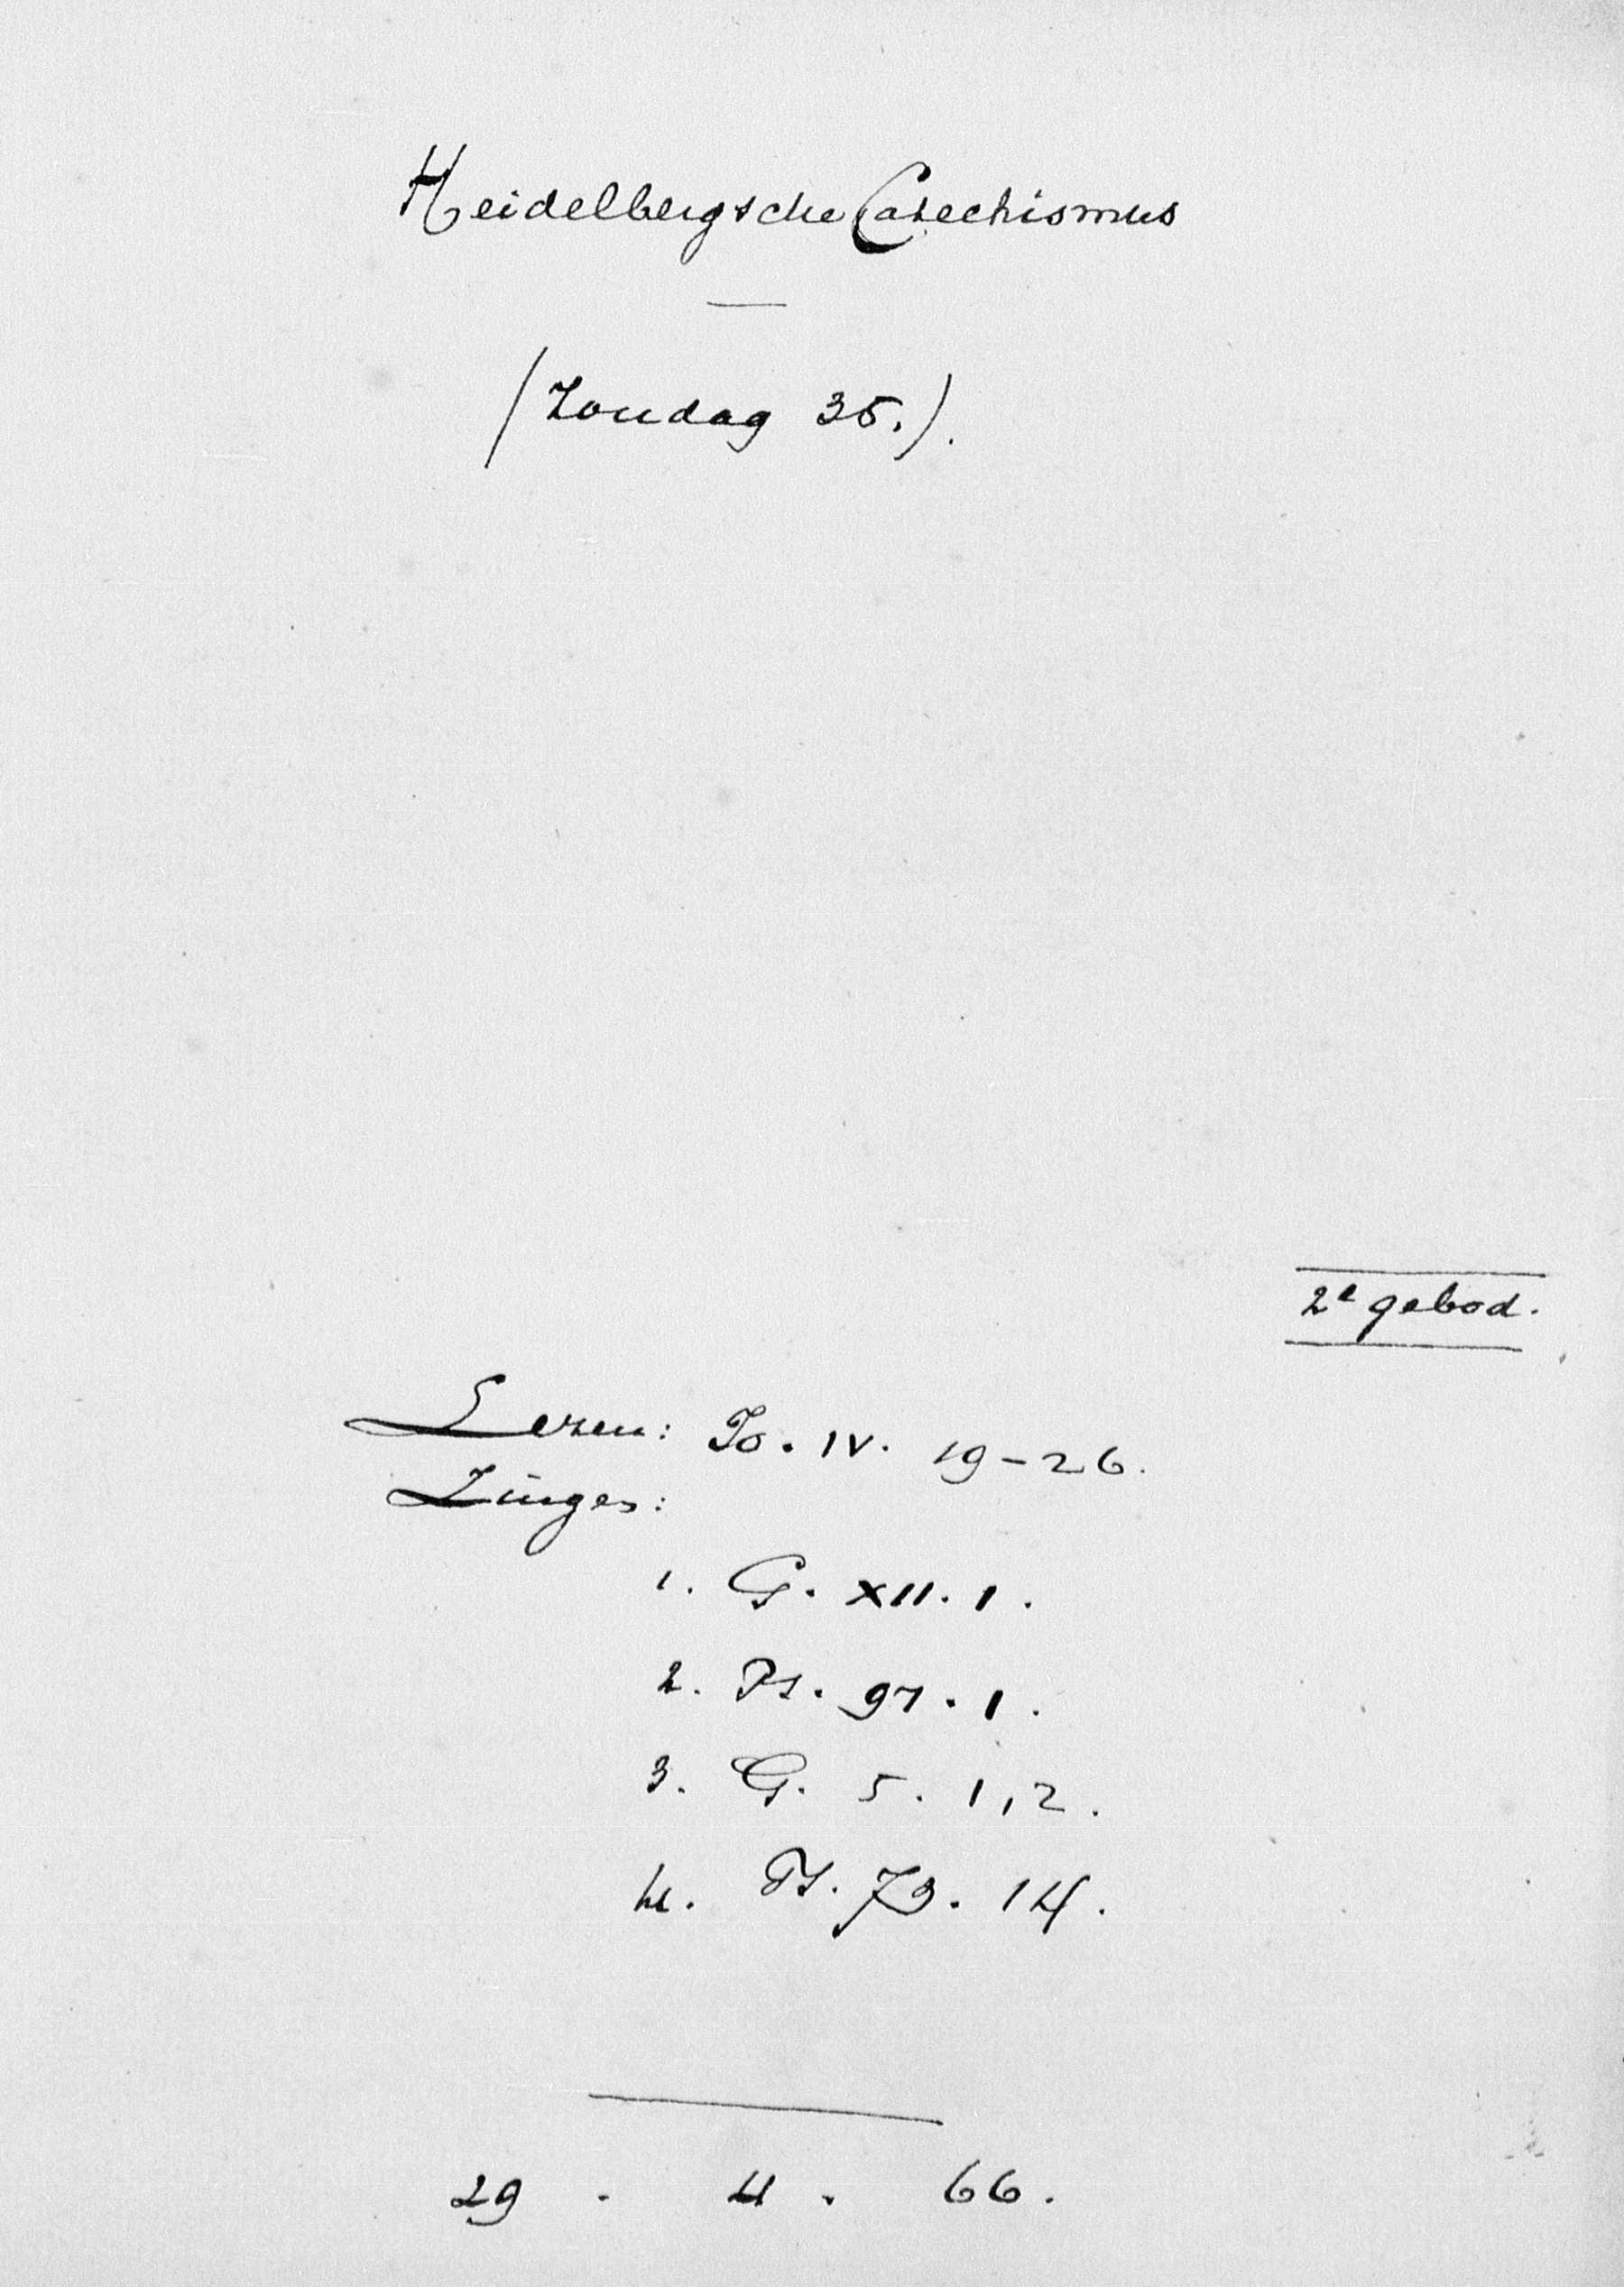 Heidelbergsche Catechismus
(Zondag 35.).
2e gebod.
Lezen: Jo. IV. 19-26.
Zingen:
1. G. XII. 1.
2. Ps. 97. 1.
3. G. 5. 1, 2.
4. Ps. 73. 14.
29 . 4 . 66.